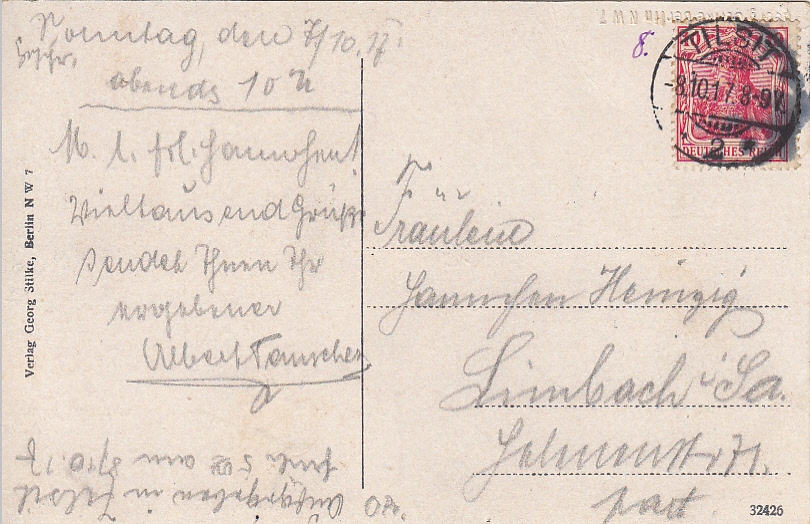 Sonntag, den 7/10.17.
abends 10 h
M. l. Frl. Hannchen!
Vieltausend Grüße
sendet Ihnen Ihr
ergebener
Albert Tauscher
Aufgegeben in Tilsit
früh 5 am 8/10.17
Verlag Georg Stilke, Berlin N W 7
8.
TILSIT
-8.10.17.8-9V.
2 *
DEUTSCHES REICH
Für
Fräulein
Hannchen Heinzig
Limbach i/Sa.
Helenenstr. 71.
part.
32426